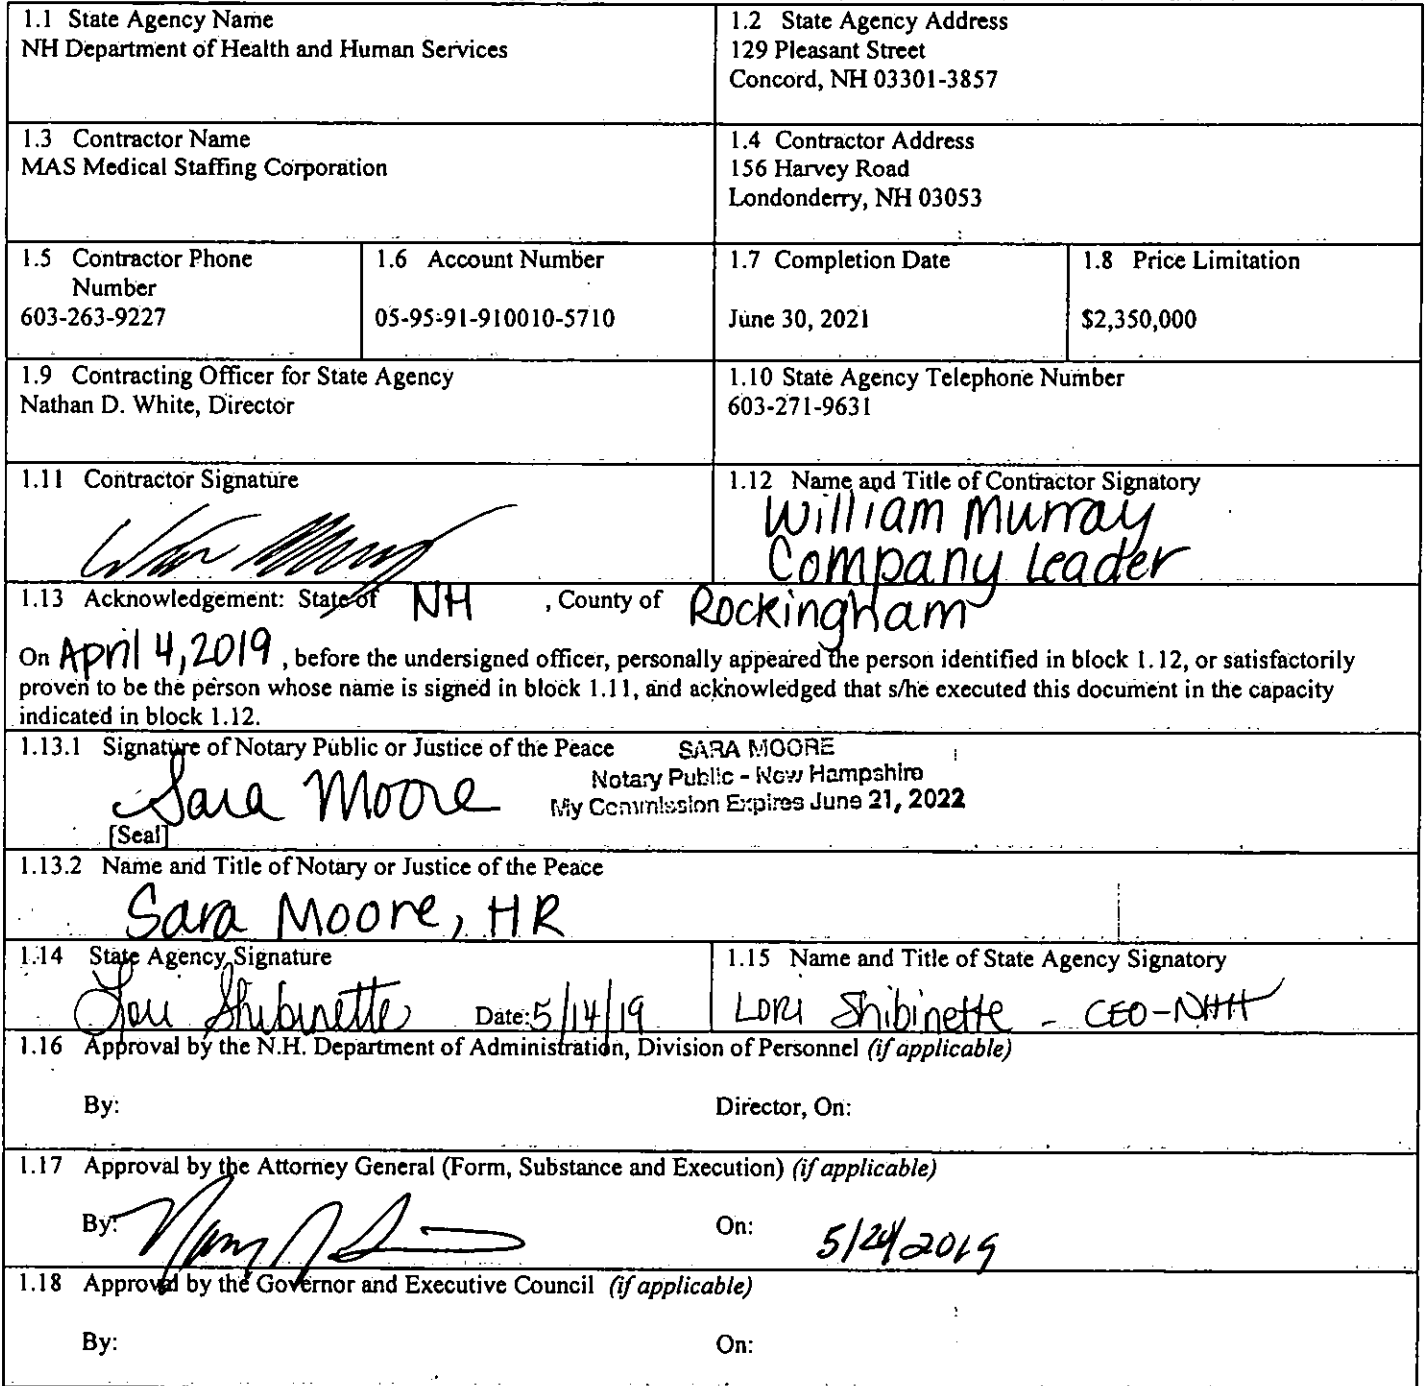 1.1 State Agency Name
NH Department of Health and Human Services
1.2 State Agency Address
129 Pleasant Street
Concord, NH 03301-3857
1.3 Contractor Name
MAS Medical Staffing Corporation
1.4 Contractor Address
156 Harvey Road
Londonderry, NH 03053
1.5 Contractor Phone
Number
603-263-9227
1.6 Account Number
05-95-91-910010-5710
1.7 Completion Date
June 30, 2021
1.8 Price Limitation
$2,350,000
1.9 Contracting Officer for State Agency
Nathan D. White, Director
1.10 State Agency Telephone Number
603-271-9631
1.11 Contractor Signature
1.12 Name and Title of Contractor Signatory
William Murray
Company Leader
1.13 Acknowledgement: State of NH , County of Rockingham
On April 4, 2019 , before the undersigned officer, personally appeared the person identified in block 1.12, or satisfactorily
proven to be the person whose name is signed in block 1.11, and acknowledged that s/he executed this document in the capacity
indicated in block 1.12.
1.13.1 Signature of Notary Public or Justice of the Peace
SARA MOORE
Notary Public - New Hampshire
My Commission Expires June 21, 2022
Sara Moore
[Seal]
1.13.2 Name and Title of Notary or Justice of the Peace
Sara Moore, HR
1.14 State Agency Signature
Lori Shibinette Date: 5/14/19
1.15 Name and Title of State Agency Signatory
LORI Shibinette - CEO-NHH
1.16 Approval by the N.H. Department of Administration, Division of Personnel (if applicable)
By: Director, On:
1.17 Approval by the Attorney General (Form, Substance and Execution) (if applicable)
By: On: 5/24/2019
1.18 Approval by the Governor and Executive Council (if applicable)
By: On: